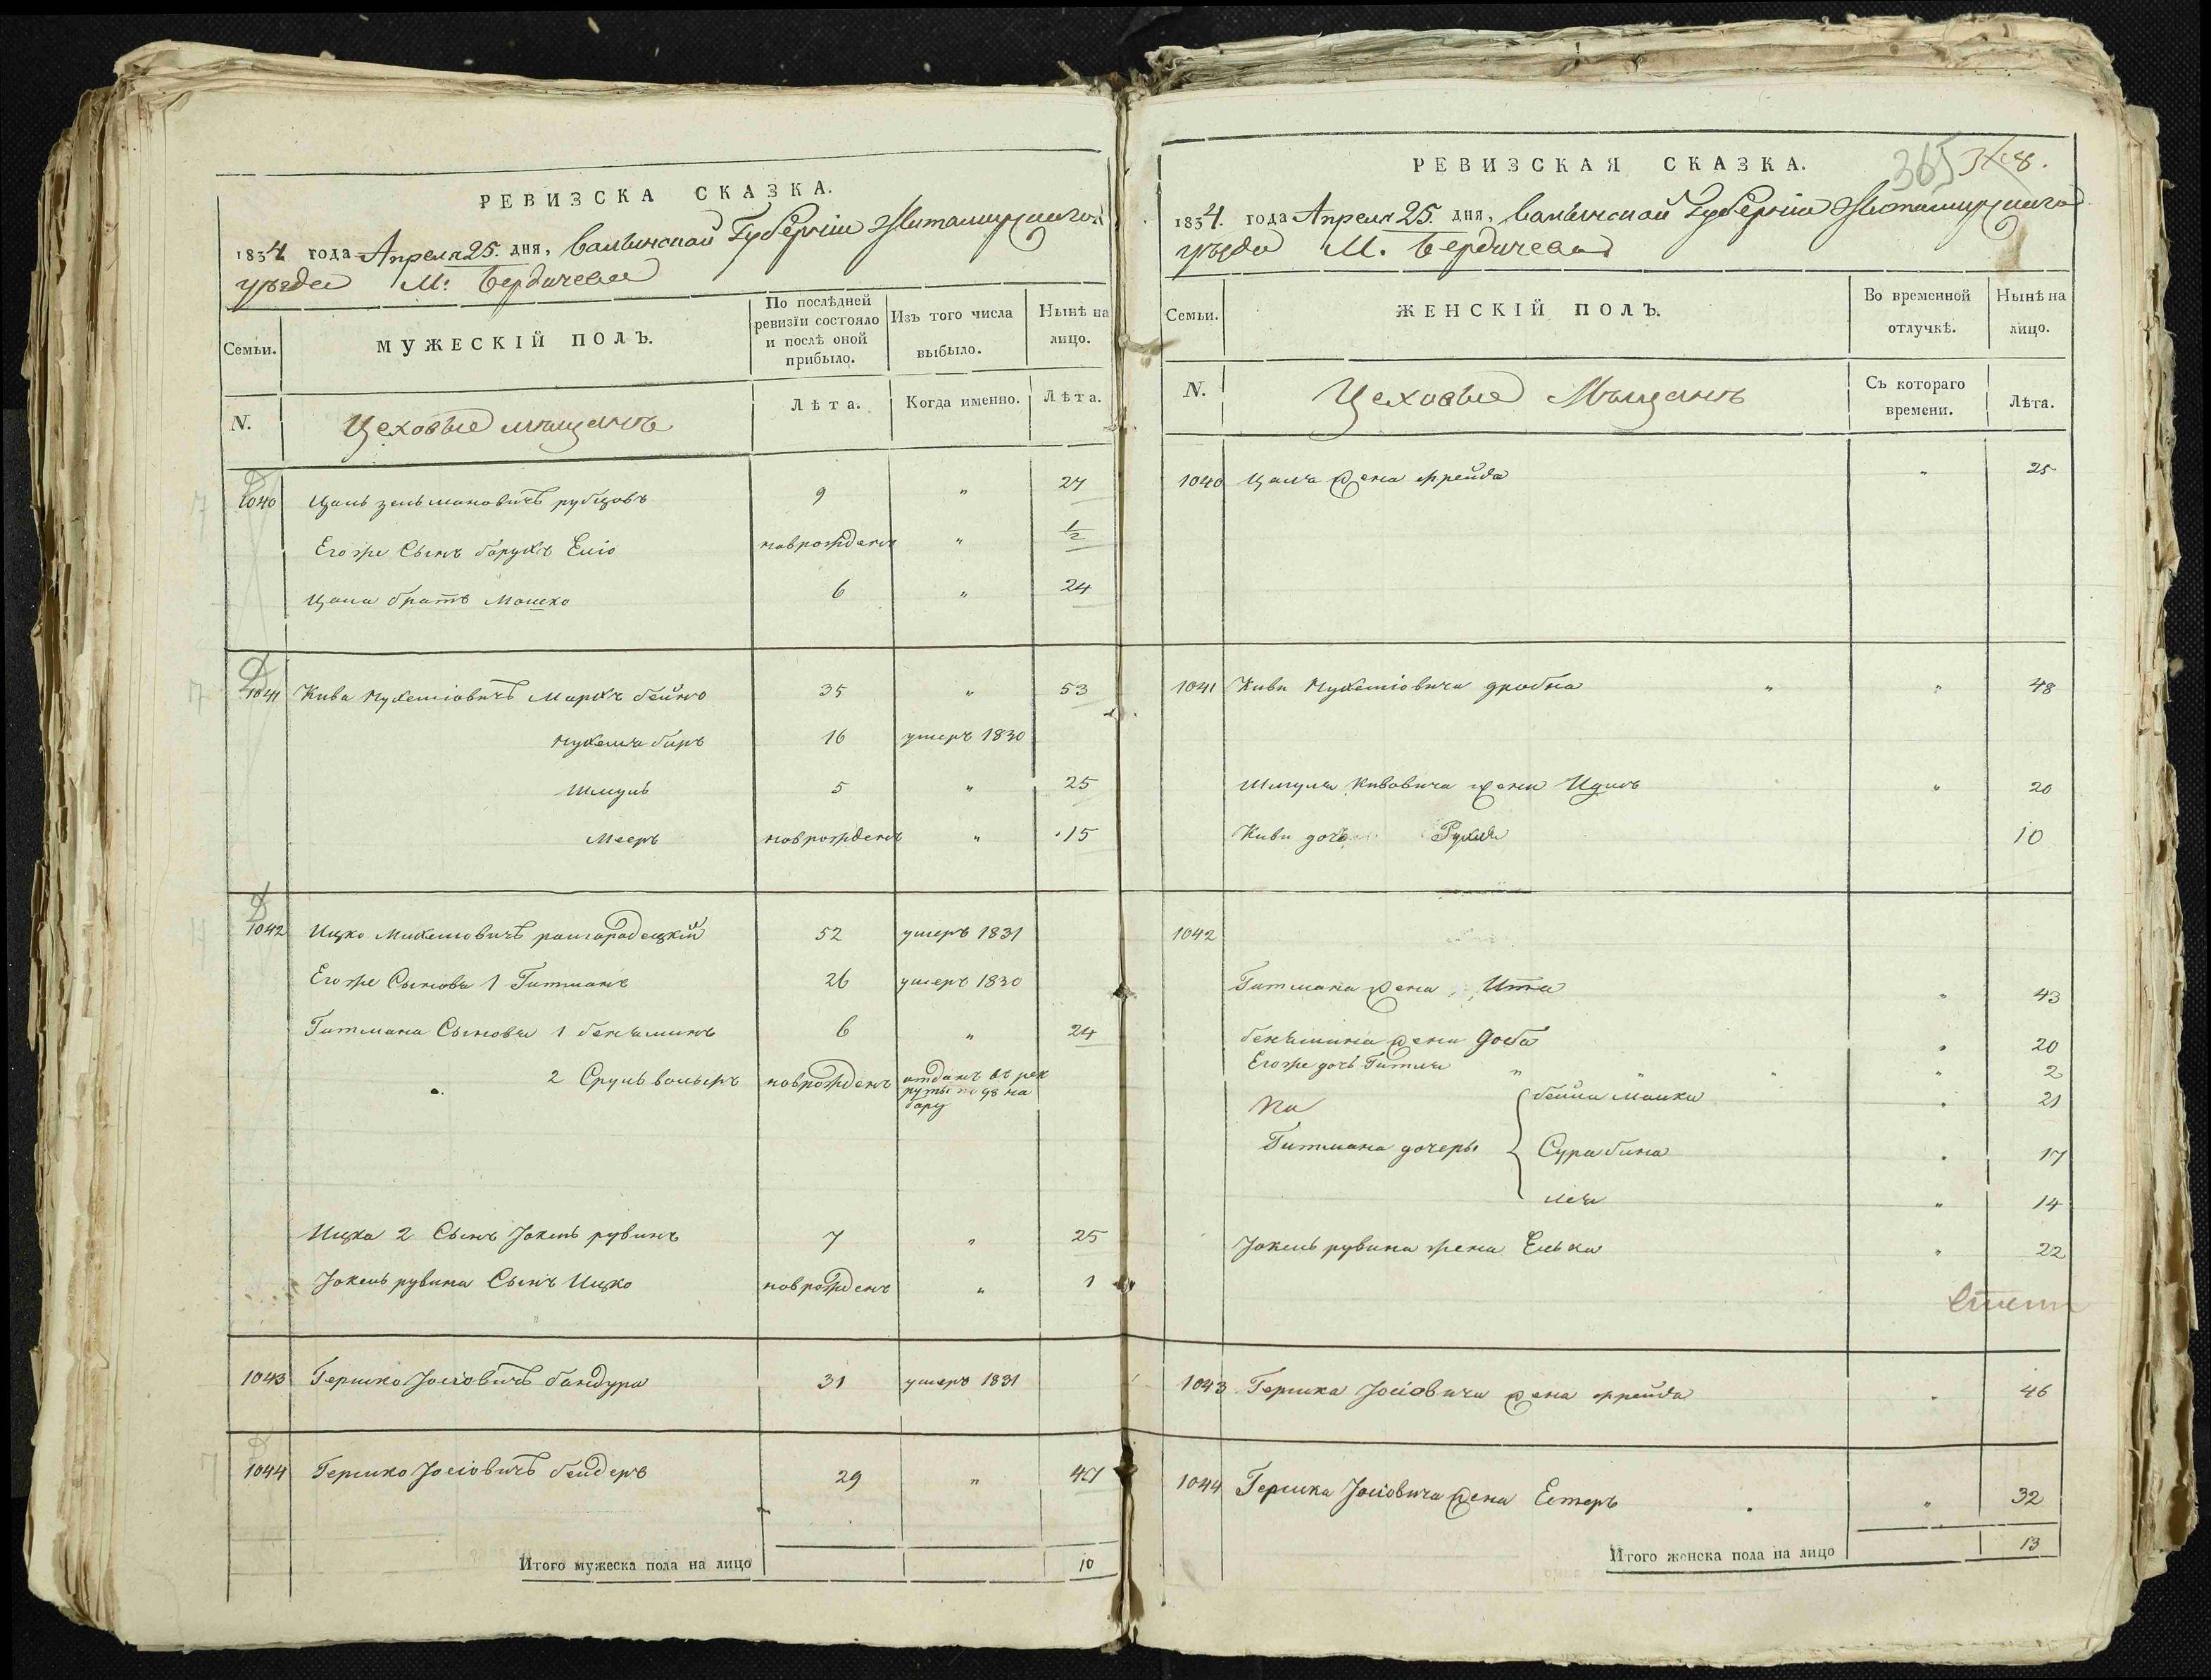 РЕВИЗСКА СКАЗКА.
1834 года Апреля 25. дня, Волынской Губернии Житомирскаго
уезда М: Бердичева
Семьи.
МУЖЕСКІЙ ПОЛЪ.
По послѣдней ревизіи состояло и послѣ оной прибыло.
Изъ того числа выбыло.
Нынѣ на лицо.
N.
Цеховые мещанъ
Лѣта.
Когда именно.
Лѣта.
1040 Цаль Зельмановичъ рубцовъ 9 " 27
Егоже Сынъ барухъ Еліо новрожденъ " 1/2
Цаля братъ Мошко 6 " 24
1041 Кива Нухемовичъ 35 " 53
16 умеръ 1830
Шмуль 5 " 25
Мееръ новрожденъ " 15
1042 Ицко 52 умеръ 1831
Егоже Сыновья 1 Гитманъ 26 умеръ 1830
Гитмана Сыновья 1 беньяминъ 6 " 24
2 Сруль новрожденъ отданъ въ рек
руты по 98 на
бору
Ицка 2 Сынъ Іокель рувинъ 7 " 25
Іокель рувина Сынъ Ицко новрожденъ " 1
1043 Гершко Іосіовичъ бандура 31 умеръ 1831
1044 Гершко Іосіовичъ бендеръ 29 "
Итого мужеска пола на лицо 10
РЕВИЗСКАЯ СКАЗКА.
365
1834. года Апреля 25. дня, Волынской Губернии Житомирскаго
уезда М. Бердичева
Семьи.
ЖЕНСКІЙ ПОЛЪ.
Во временной отлучкѣ.
Нынѣ на лицо.
N.
Цеховые Мещанъ
Съ котораго времени.
Лѣта.
1040 Цаля жена фрейда " 25
1041 Киви Нухемовича " " 48
Шмуля Кивовича жена " 20
Киви дочь Рухля 10
1042
Гитмана жена Ита " 43
беньямина жена Доба " 20
Егоже дочь Гитля " " " 2
бейла Малка " 21
Гитмана дочеры Сура бина " 17
лея " 14
Іокель рувина жена Елька " 22
1043 Гершка Іосіовича жена фрейда " 46
1044 Гершка Іосіовича жена Естеръ " 32
Итого женска пола на лицо 13